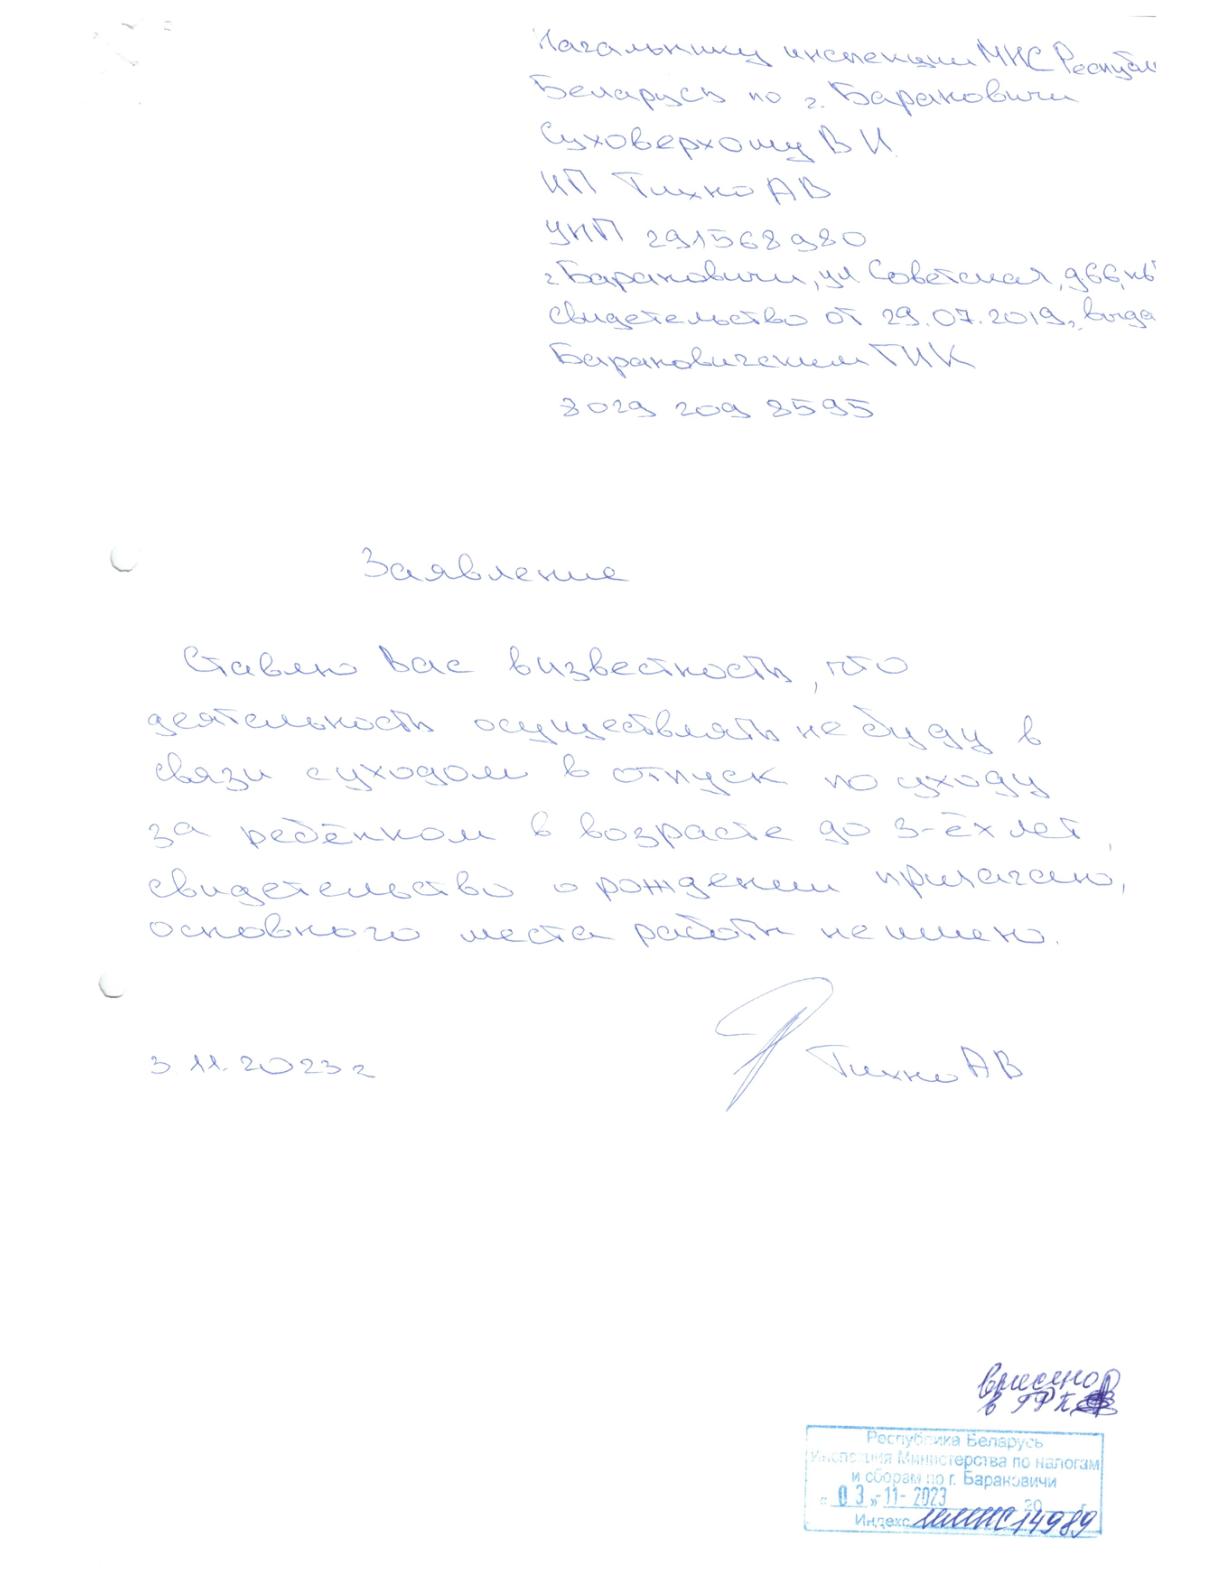 Начальнику инспекции МНС Республ
Беларусь по г. Барановичи
Суховерхому В И
ИП Тихно АВ
УНП 291568980
г Барановичи, ул Советская, д66, кв
свидетельство от 29.07.2019, выда
Барановичским ГИК
8029 209 8595
Заявление
Ставлю Вас в известность, что
деятельность осуществлять не буду в
связи с уходом в отпуск по уходу
за ребёнком в возрасте до 3-ёх лет,
свидетельство о рождении прилагаю,
основного места работы не имею.
3 11. 2023 г
Тихно АВ
внесено
в ГРП
Республика Беларусь
Инспекция Министерства по налогам
и сборам по г. Барановичи
« 03 » -11- 2023 20 г.
Индекс 14989